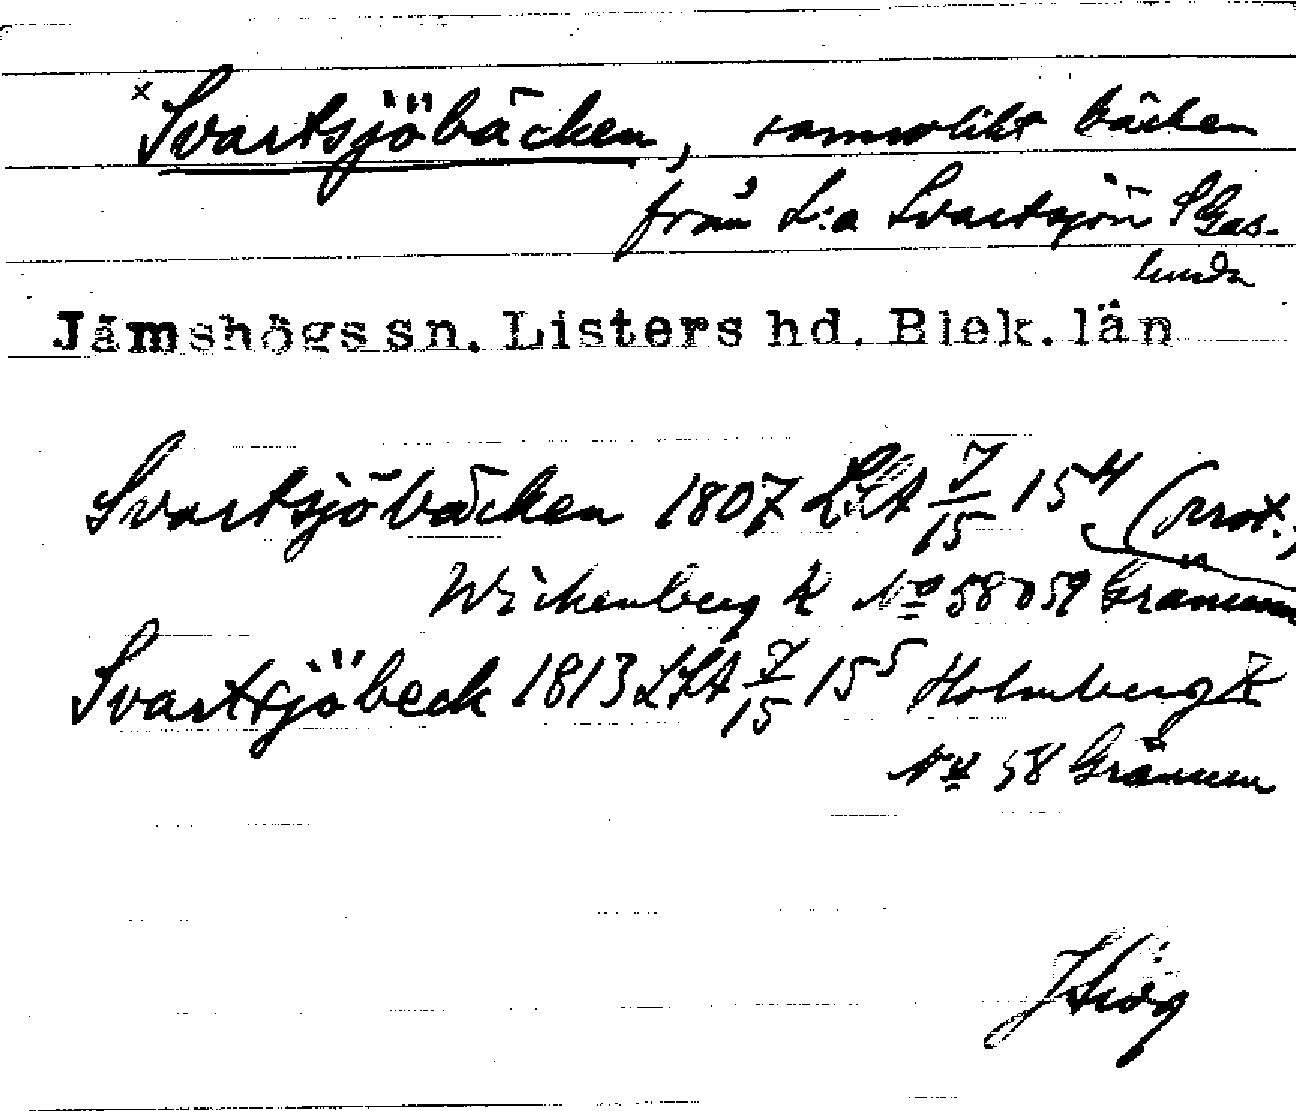 × Svartsjöbäcken, sannolikt bäcken
från L:a Svartsjön S Gas-
lunda
Jämshögs sn. Listers hd. Blek. län
Svartsjöbäcken 1807 LSA 7/15 15⁴ (prot.)
Wickenberg K No 58 o 59 Gränum
Svartsjöbeck 1813 LSA 7/15 15⁵ Holmberg K
No 58 Gränum